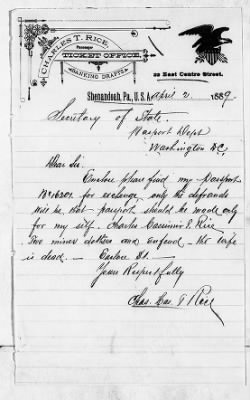 CHARLES T. RICE,
Passenger
TICKET OFFICE.
BANKING DRAFTS
22 East Centre Street.
Shenandoah, Pa., U. S. A. April 2 1889.
Secretary of State.
Passport Dept
Washington DC
Dear Sir:
Enclose please find my passport
for exchange only the
will be that passport should be made only
for my self. Charles Casimir T. Rice
Two minor and - the wife
is dead. - Enclose $1. -
Yours Respectfully
Chas. Cas T Rice